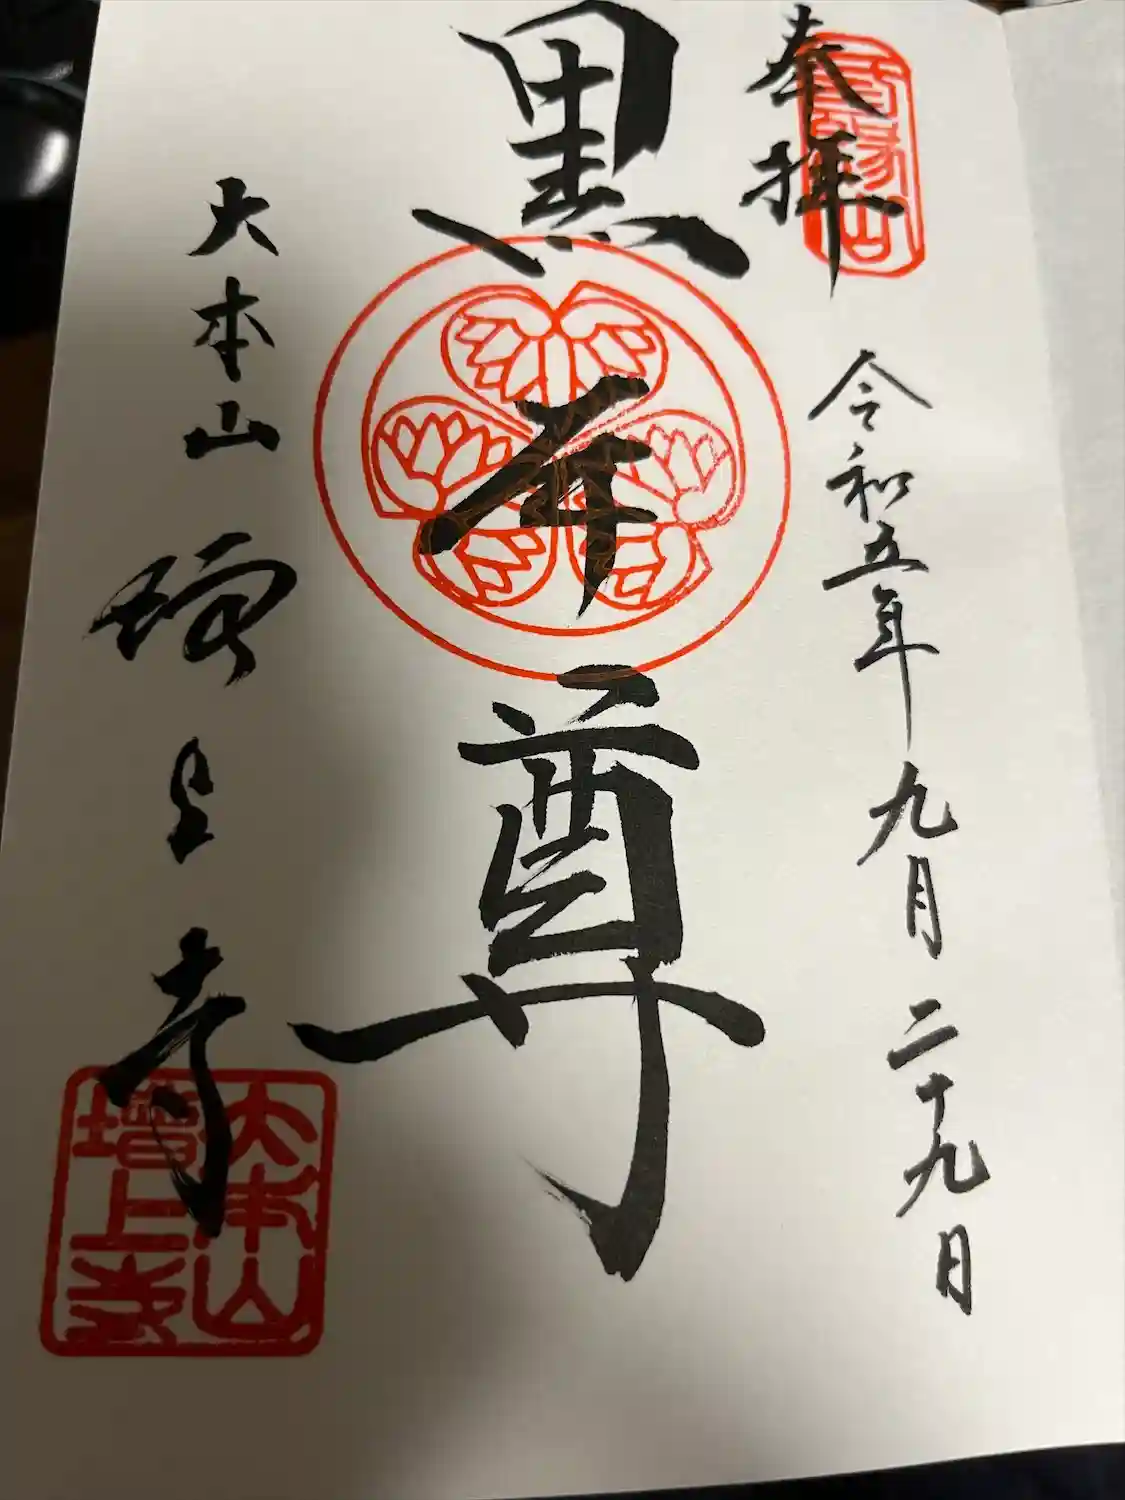 奉拝
三縁山
令和五年九月二十九日
黒本尊
大本山 増上寺
大本山
増上寺